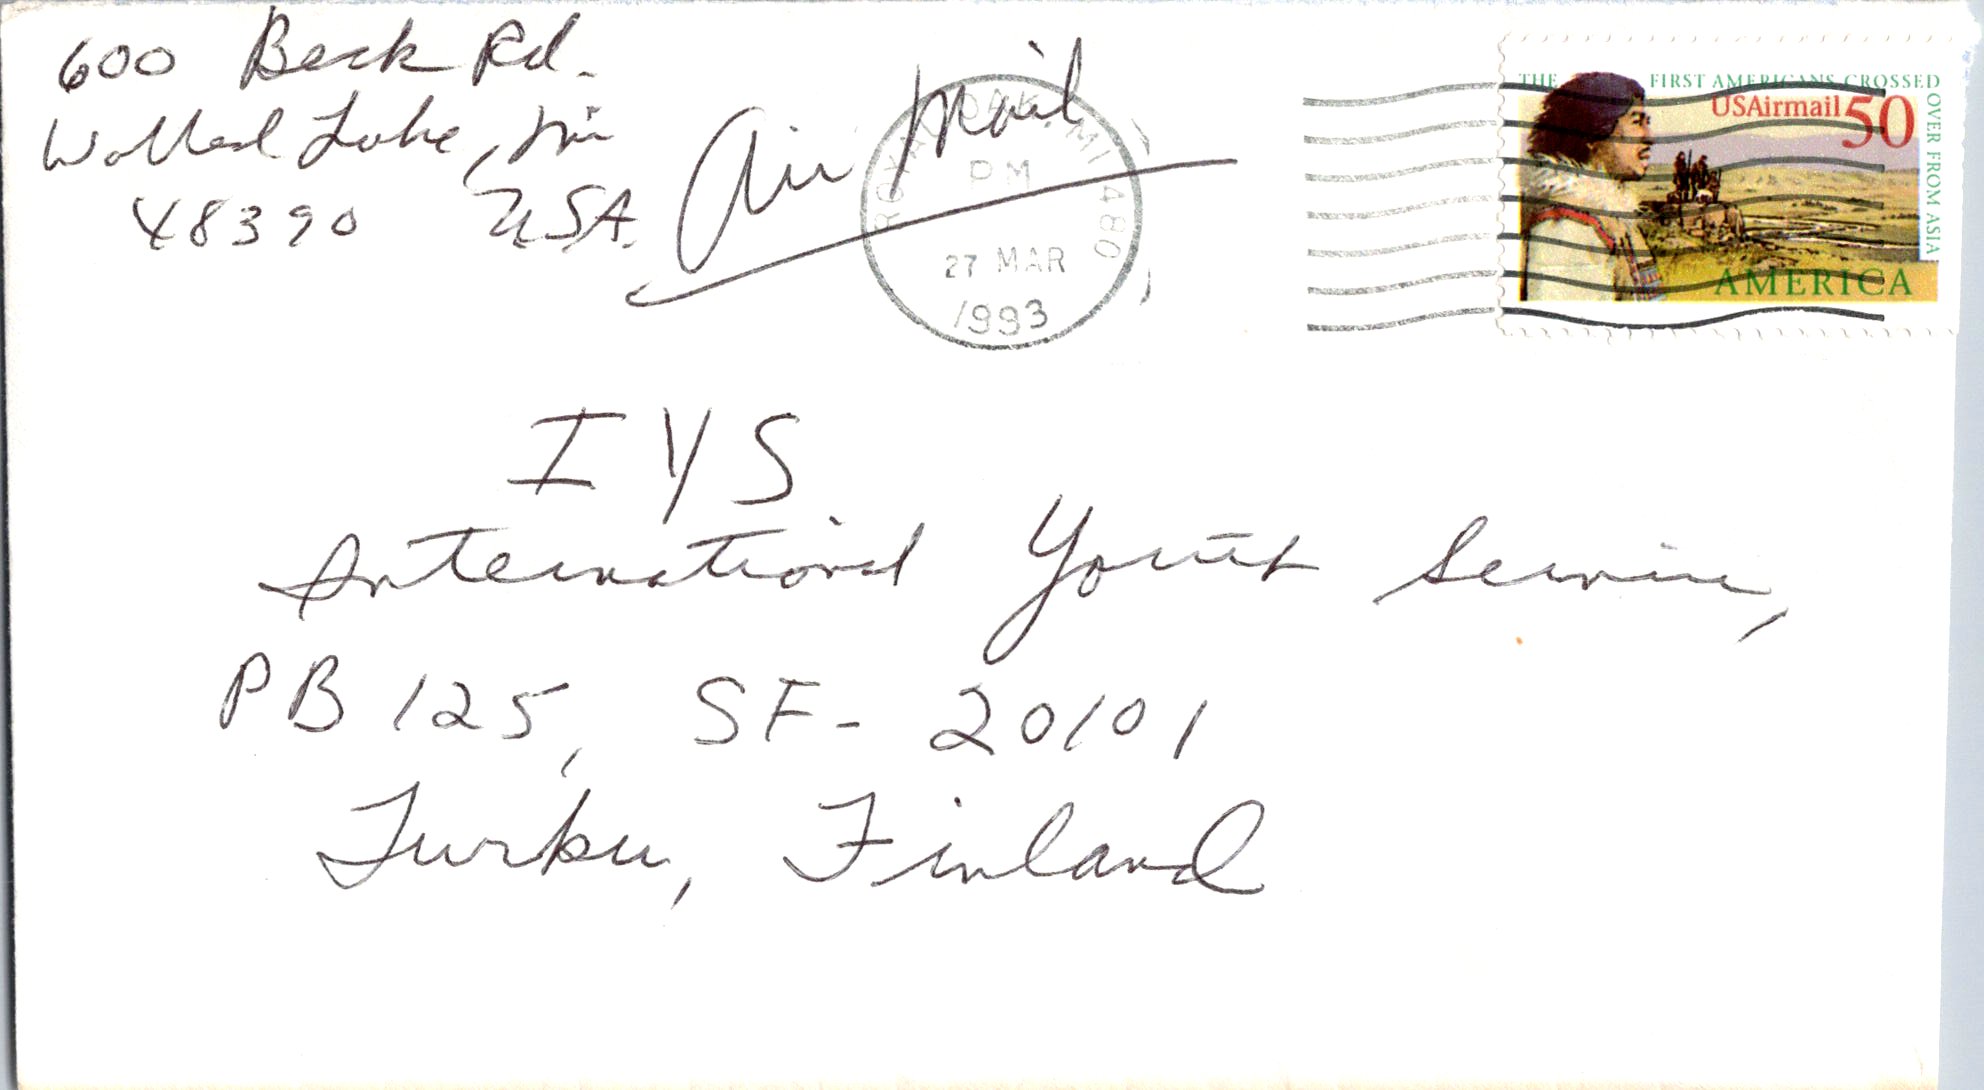 600 Beck Rd.
Walled Lake, Mi
48390 USA.
Air Mail
ROYAL OAK, MI 480
PM
27 MAR
1993
THE FIRST AMERICANS CROSSED OVER FROM ASIA
USAirmail 50
AMERICA
IYS
International Youth Service,
PB 125, SF- 20101
Turku, Finland